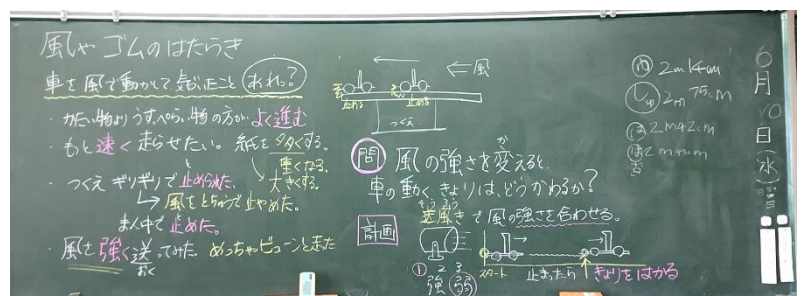 風やゴムのはたらき
車を風で動かして気づいたこと あれ?
・かたい物よりうすっぺらい物の方がよく進む
・もっと速く走らせたい。紙を多くする。
重くなる。
大きくする。
・つくえギリギリで止められた。
→風をとちゅうで止やめた。
まん中で止めた。
・風を強く送ってみた。めっちゃビューンと走った
おく
←風
止める
止める
つくえ
問 風の強さを変えると、
か
車の動くきょりは、どうかわるか?
計画 送風きで風の強さを合わせる。
そうふう
① 2 3
強 弱
スタート 止まったら きょりをはかる
2m14cm
2m75cm
2m42cm
6月10日(水)